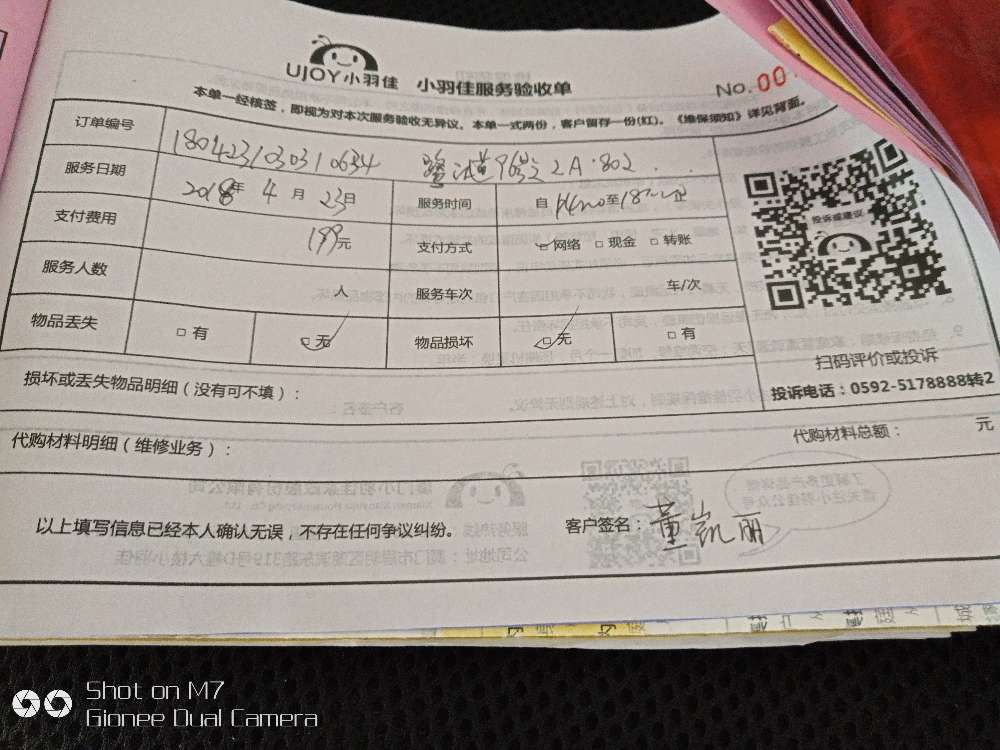 UJOY小羽佳 小羽佳服务验收单
No.00
本单一经核签，即视为对本次服务验收无异议。本单一式两份，客户留存一份(红)。《维保须知》详见背面。
订单编号 180423103031 0634 2A.802
服务日期 2018年 4 月 23日 服务时间 自 至18
支付费用 199元 支付方式 网络 □ 现金 □ 转账
服务人数 人 服务车次 车/次
物品丢失 □ 有 □ 无 物品损坏 □ 无 □ 有
投诉或建议
扫码评价或投诉
投诉电话：0592-5178888转2
损坏或丢失物品明细（没有可不填）：
代购材料明细（维修业务）： 代购材料总额： 元
以上填写信息已经本人确认无误，不存在任何争议纠纷。 客户签名：董凯丽
Shot on M7
Gionee Dual Camera